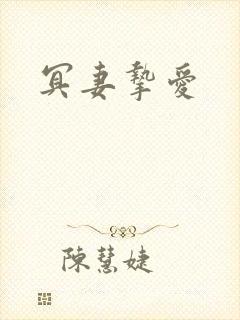 冥妻摯愛
陳慧婕